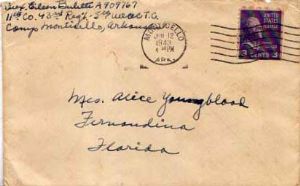 Aux. Eileen Bullett A909767
11th Co. 43rd Regt. 5th WAAC T.C.
Camp Monticello, Arkansas
MONTICELLO
JUN 12
1943
PM
ARK.
UNITED STATES
3 CENTS 3
Mrs. Alice Youngblood
Fernandina
Florida